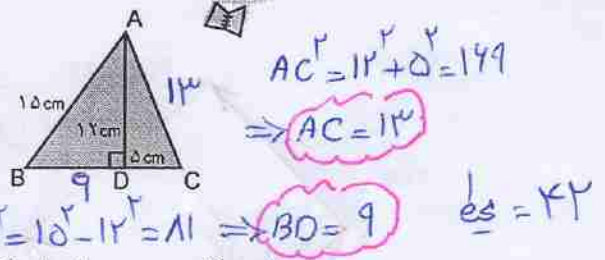 A
۱۵cm
۱۲cm
۵cm
۱۳
B
۹
D
C
AC^۲ = ۱۲^۲ + ۵^۲ = ۱۶۹
⇒ AC = ۱۳
^۲ = ۱۵^۲ - ۱۲^۲ = ۸۱ ⇒ BD = ۹
= ۴۲